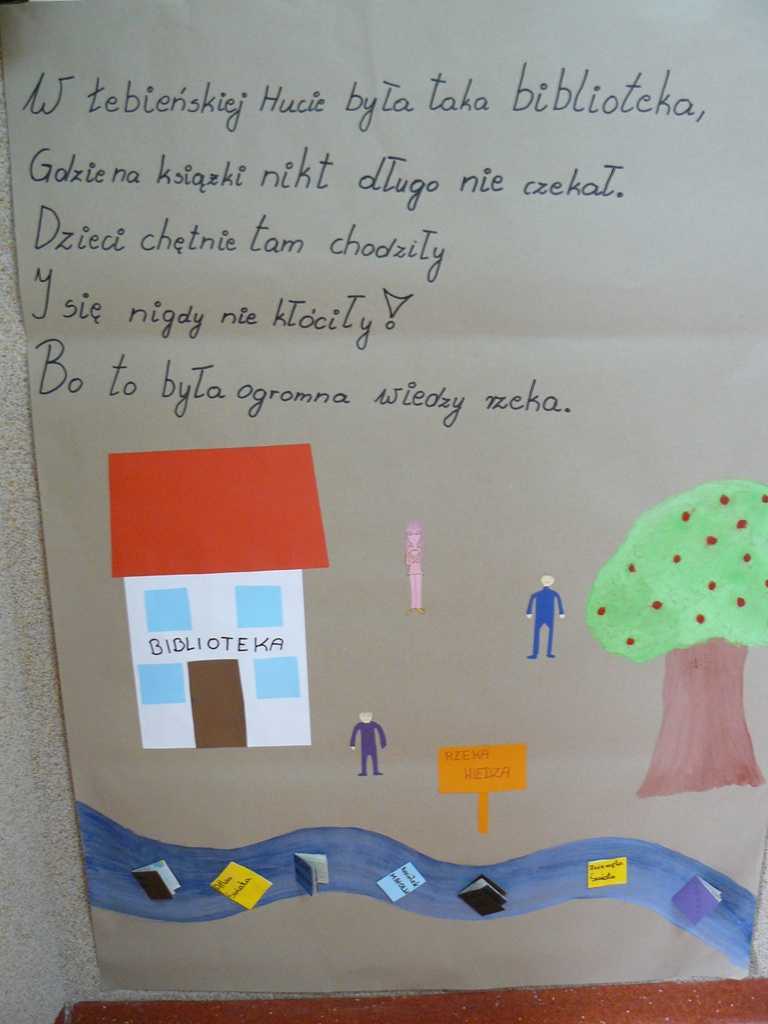 W Łebieńskiej Hucie była taka biblioteka,
Gdzie na książki nikt długo nie czekał.
Dzieci chętnie tam chodziły
I się nigdy nie kłóciły!
Bo to była ogromna wiedzy rzeka.
BIBLIOTEKA
RZEKA
WIEDZA
Świata
Świata